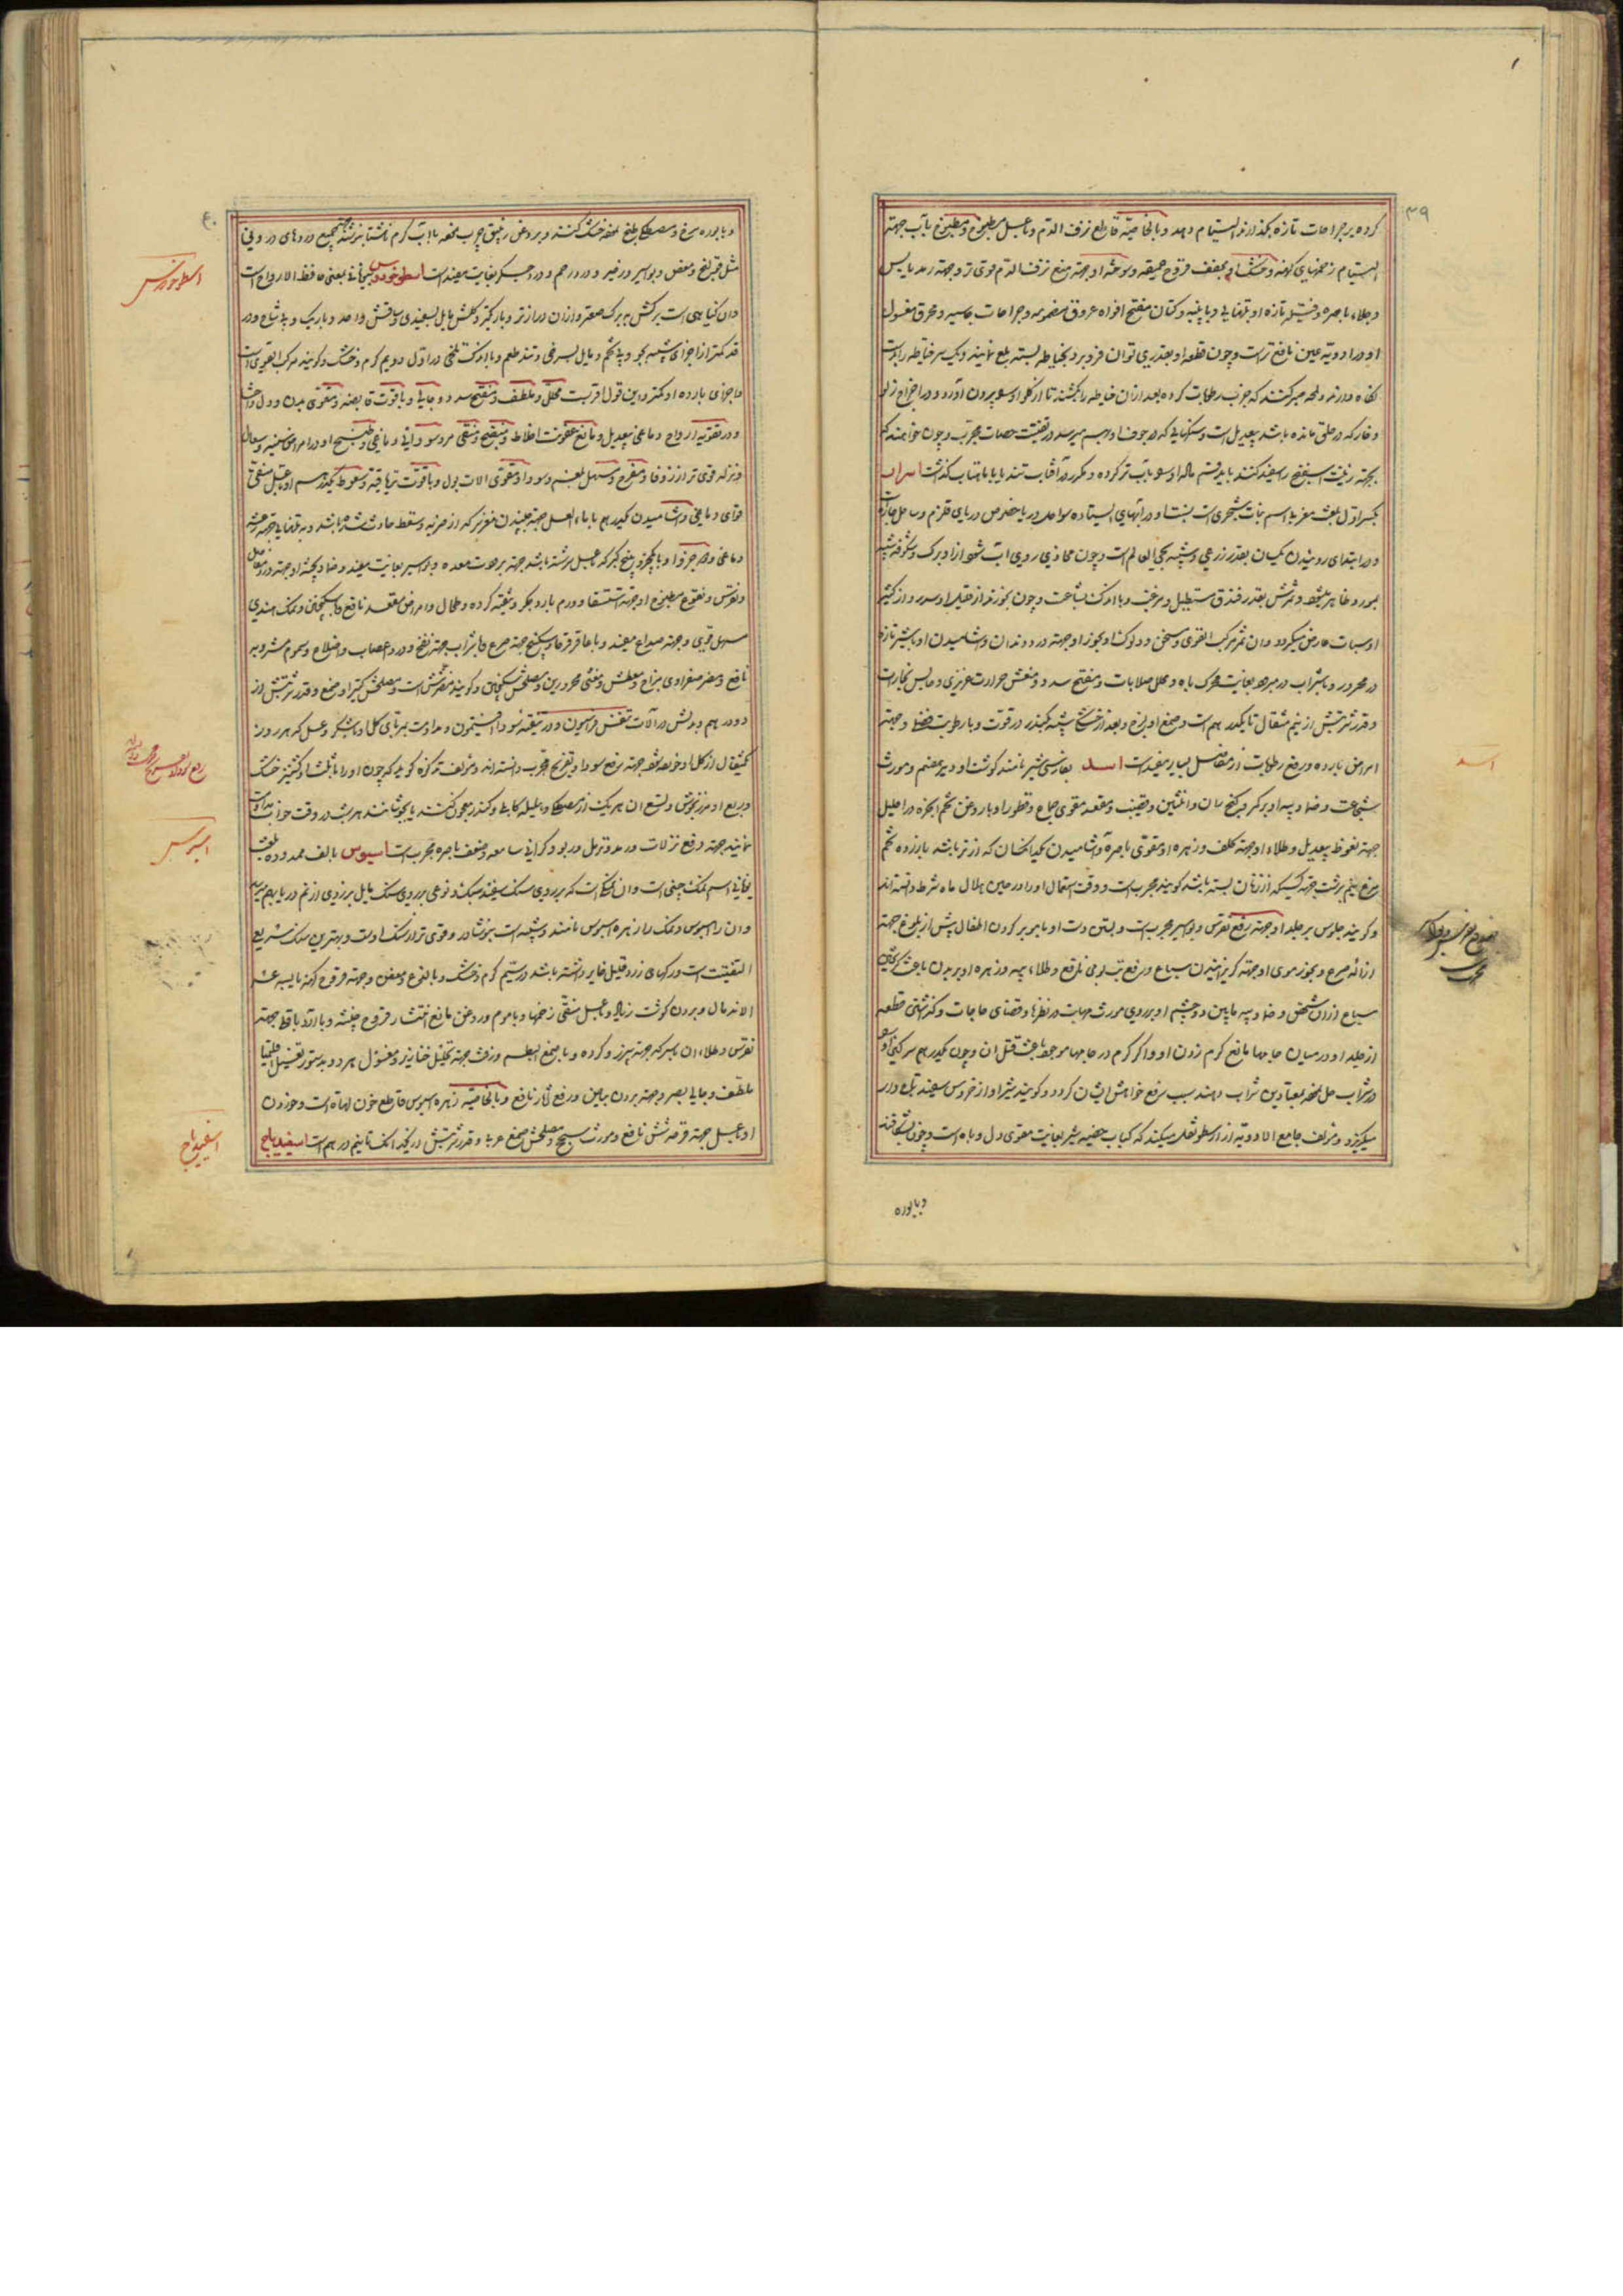 ۳۹
کرده بر جراحات تازه بگذارند التیام دهد و بالخاصیة قاطع نزف الدم و با عسل مطبوخ و مطبوخ بآب جهة
التیام زخمهای کهنه و خشک او مجفف قروح عمیقه و سوخته او جهة منع نزف الدم قوی تر و جهة رمد یابس
و جلاء باصره و فتیله تازه او بتنهایی و با پنبه و کتان مفتح افواه عروق منضمه و جراحات جاسیه و محرق مغسول
او در ادویه عین نافع تر است و چون قطعه او بقدری توان فرو برد بخیاطه بسته بلع نمایند و یک سر خیاطه را بدست
نگاه دارند و لمحه صبر کنند که جذب رطوبات کرده بعد از آن خیاطه را بکشند تا از گلو او بیرون آورد و در اخراج زلو
و خار که در حلق مانده باشد بیعدیل است و سنگهایی که در جوف او بهم میرسد در تفتیت حصات مجرب و چون خواهند که
بجهة زینت اسفنج را سفید کنند باید قسم ماده او سو بآب تر کرده و مکرر در آفتاب تند یا با ماهتاب گذاشت اسرار
بکسر اول بلغت مغربی اسم نبات شجری است و در آبهای ایستاده سواحل دریا خصوص دریای قلزم و ساحل حجاز
و در ابتدای روئیدن یکسان بقدر ذرعی و شبیه بحی العالم است و چون محاذی روی آب شود از او برگ و شکوفه شبیه
بمورد ظاهر میشود و ثمرش بقدر فندق مستطیل و مزغب و با اندک بشاعت و چون بخورند از قلیل او سدر و از کثیر
او سبات عارض میگردد و آن ثمر مرکب القوی و مسخن و دلوک او بخور او جهة درد دندان و آشامیدن او با شیر تازه
در محرور و با شراب در مبرود بغایت محرک باه و محلل صلابات و مفتح سدد و منعش حرارت غریزی و حابس بخارات
و قدر شربتش از نیم مثقال تا یکدرهم است و صمغ او لزج و بعد از خشکی شبیه بکندر در قوت و با رطوبت فضلیه و جهة
امراض بارده و رفع رطوبات از مفاصل بسیار مفید است اسد بفارسی شیر نامند گوشت او دیر هضم و مورث
شجاعت و ضماد پیه او بر کمر و کنج ران و انثیین و قضیب و مقعد مقوی جماع و قطور او با روغن تخم انجره در احلیل
جهة نعوظ بیعدیل و طلاء او جهة کلف و زهره او مقوی باصره و آشامیدن یکدانگ آن که از نر باشد با زرده تخم
مرغ نیم برشت جهة کسیکه از زنان بسته باشد گویند مجرب است و وقت استعمال او را در حین هلال ماه شرط دانسته اند
و گویند جلوس بر جلد او جهة رفع نقرس و بواسیر مجرب است و بستن دست او با مو بر گردن اطفال پیش از بلوغ جهة
ازاله صرع و بخور موی او جهة گریزانیدن سباع و رفع تب یومی نافع و طلاء پیه و زهره او بر بدن باعث گریختن
سباع از آن شخص و ضماد پیه مابین دو چشم او بر روی مورث مهابت در نظرها و قضای حاجات و گذاشتن قطعه
از جلد او در میان جامها مانع کرم زدن او و اگر کرم در جامها موجود باعث قتل آن و چون یکدرهم سرگین او
در شراب حل نموده بمعتادین شراب دهند سبب رفع خواهش ایشان گردد و گویند شیر او از خروس سفید تاجدار
میگریزد و مؤلف جامع الادویه از ارسطو نقل میکند که کباب خصیه شیر بغایت مقوی دل و باه است و چون شکافته
و با بوره
اسد
۴۰
و با بوره سرخ و مصطکی بلغ نموده خشک کنند و بروغن زنبق چرب نموده با آب گرم ناشتا بنوشند جهة جمیع دردهای درونی
مثل قولنج و مغص و بواسیر و زحیر و درد رحم و درد جگر بغایت مفید است اسطوخودوس بیونانی بمعنی حافظ الارواح است
و آن گیاهی است برگش به برگ صعتر و از آن درازتر و باریکتر و گلش مایل بسفیدی و ساقش واحد و باریک و بی شاخ و در
قد کمتر از اجزای شبیه بجو و بی تخم و مایل بسرخی و تند طعم و با اندک تلخی در اول دویم گرم و خشک و گویند مرکب القوی است
و اجزای بارده او کمتر و این قول اقربست محلل و ملطف و مفتح سدد و جالی و با قوت قابضه و مقوی بدن و دل و احشا
و در تقویة ارواح دماغی بیعدیل و مانع عفونت اخلاط و منضج و منقی مره سوداوی و دماغی و طبیخ او در امراض سینه و سعال
و نزله قوی تر از زوفا و مفرح و مسهل بلغم و سودا و مقوی آلات بول و با قوت تریاقیة و سعوط یکدرهم او با عسل منقی
قوای دماغی و آشامیدن یکدرهم با ماء العسل جهة جنبیدن مغز سر که از ضربه و سقطه حادث شده باشد و بتنهایی جهة رعشه
دماغی و در جزو او با یکجزو بیخ کبر که بعسل سرشته باشد جهة برودت معده و بواسیر بغایت مفید و ضماد پخته او جهة درد مفاصل
و نقرس و نقوع و مطبوخ او جهة استسقا و ورم بارد جگر و تنقیة گرده و طحال و امراض مقعد نافع و با سکنجبین و نمک هندی
مسهل قوی و جهة صداع مفید و با عاقرقرحا و سکبینج جهة صرع و با شراب جهة نفخ و درد اعصاب و اضلاع و سموم مشروبه
نافع و مضر صفراوی مزاج و معطش و مغثی محرورین و مصلحش سکنجبین و گویند مضر شش است و مصلحش کتیرا و صمغ و قدر شربتش از
دو درهم و بدلش در آلات تنفس فراسیون و در تنقیة سودا افتیمون و مداومت مربای گل او با شکر و عسل که هر روز
یکمثقال از گل او خورده شود جهة رفع سودا و تفریح مجرب دانسته اند و مؤلف تذکره گوید که چون او را با ثلث او گشنیز خشک
و ربع او مرزنجوش و تسع آن هر یک از مصطکی و هلیله کابلی و کندر معجون کنند یا بجوشانند هر شب در وقت خواب مداومت
نمایند جهة رفع نزلات و رمد و ترهل و ربو و گرانی سامعه و ضعف باصره مجرب است اسیوس بالف ممدوده بلغت
یونانی اسم نمک چینی است و آن نمکی است که بر روی سنگ سفید سبک و نوعی بر روی سنگ مایل بزردی از نم دریا بهم میرسد
و آن را اسیوس و نمک را زهره اسیوس نامند و شبیه است بنوشادر و قوی تر از سنگ اوست و بهترین سنگ سریع
التفتیت است و رگهای زرد قلیل غایر داشته باشد در سیم گرم و خشک و با لذع و مغص و جهة قروح کهنه یابسه عسر
الاندمال و بردن گوشت زیاد و با عسل منقی زخمها و با موم و روغن مانع انتشار قروح خبیثه و با آرد باقلا جهة
نقرس و طلاء آن با سرکه جهة سپرز و گرده و با صمغ البطم و زفت جهة تحلیل خنازیر و مغسول هر دو بدستور تغسیل اقلیمیا
ملطف و جالی بصر و جهة بردن بیاض و رفع آثار نافع و بالخاصیة زهره اسیوس قاطع خون لهاة است و خوردن
او با عسل جهة قرحه شش نافع و مورث سحج و مصلحش صمغ عربی و قدر شربتش در یکدانگ تا نیم درهم است اسفیداج
اسطوخودوس
اسیوس
اسفیداج